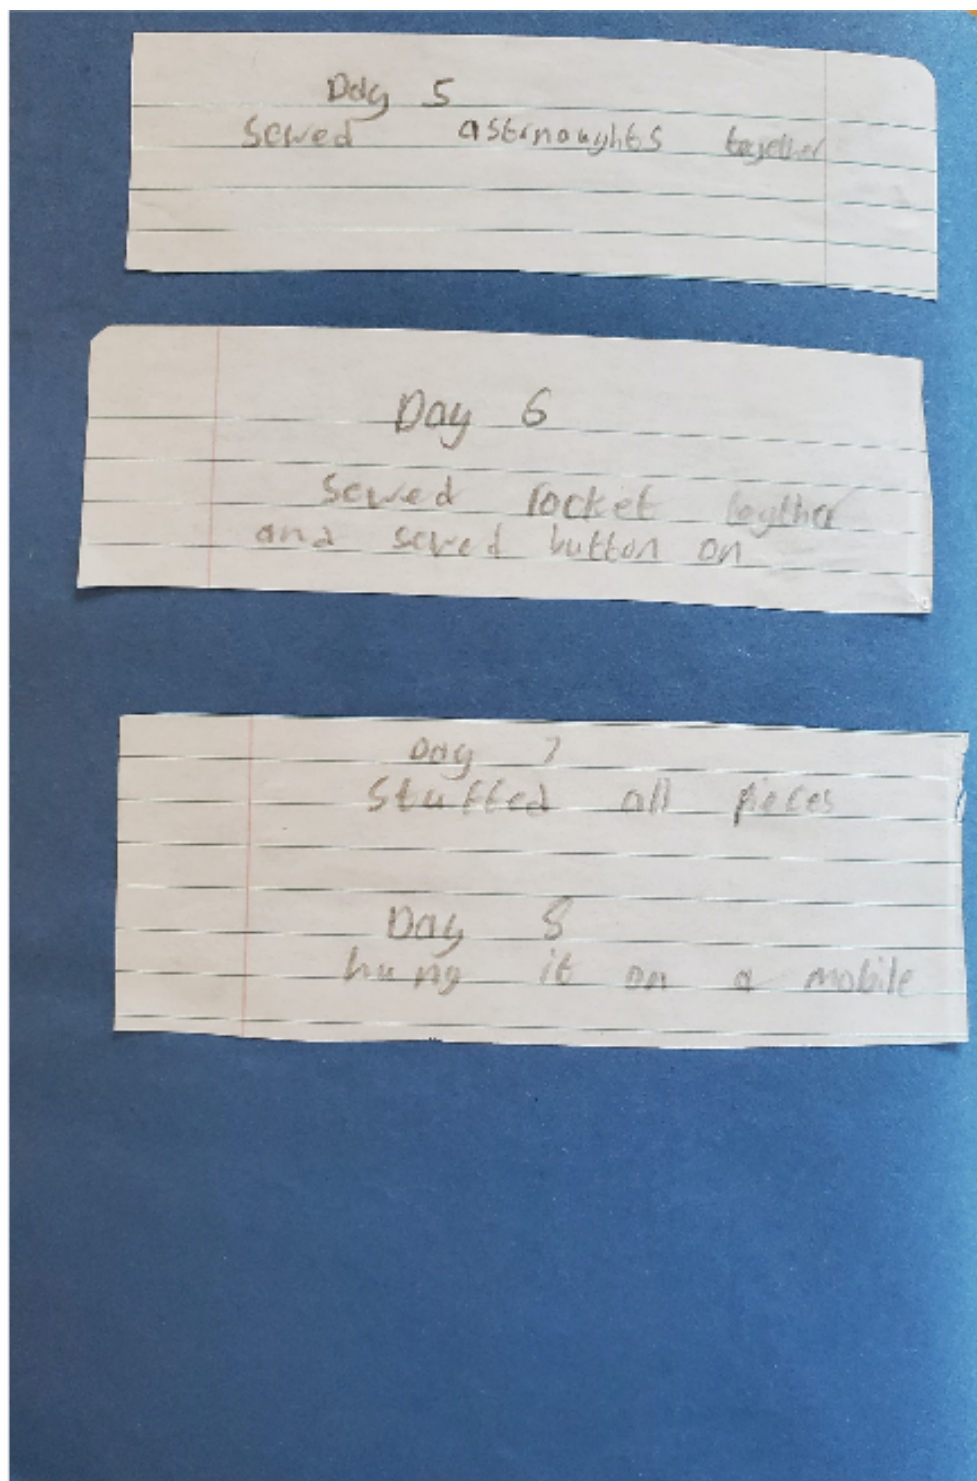 Day 5
sewed astrnoughts together
Day 6
sewed rocket togther
and sewed button on
Day 7
stuffed all pieces
Day 8
hung it on a mobile